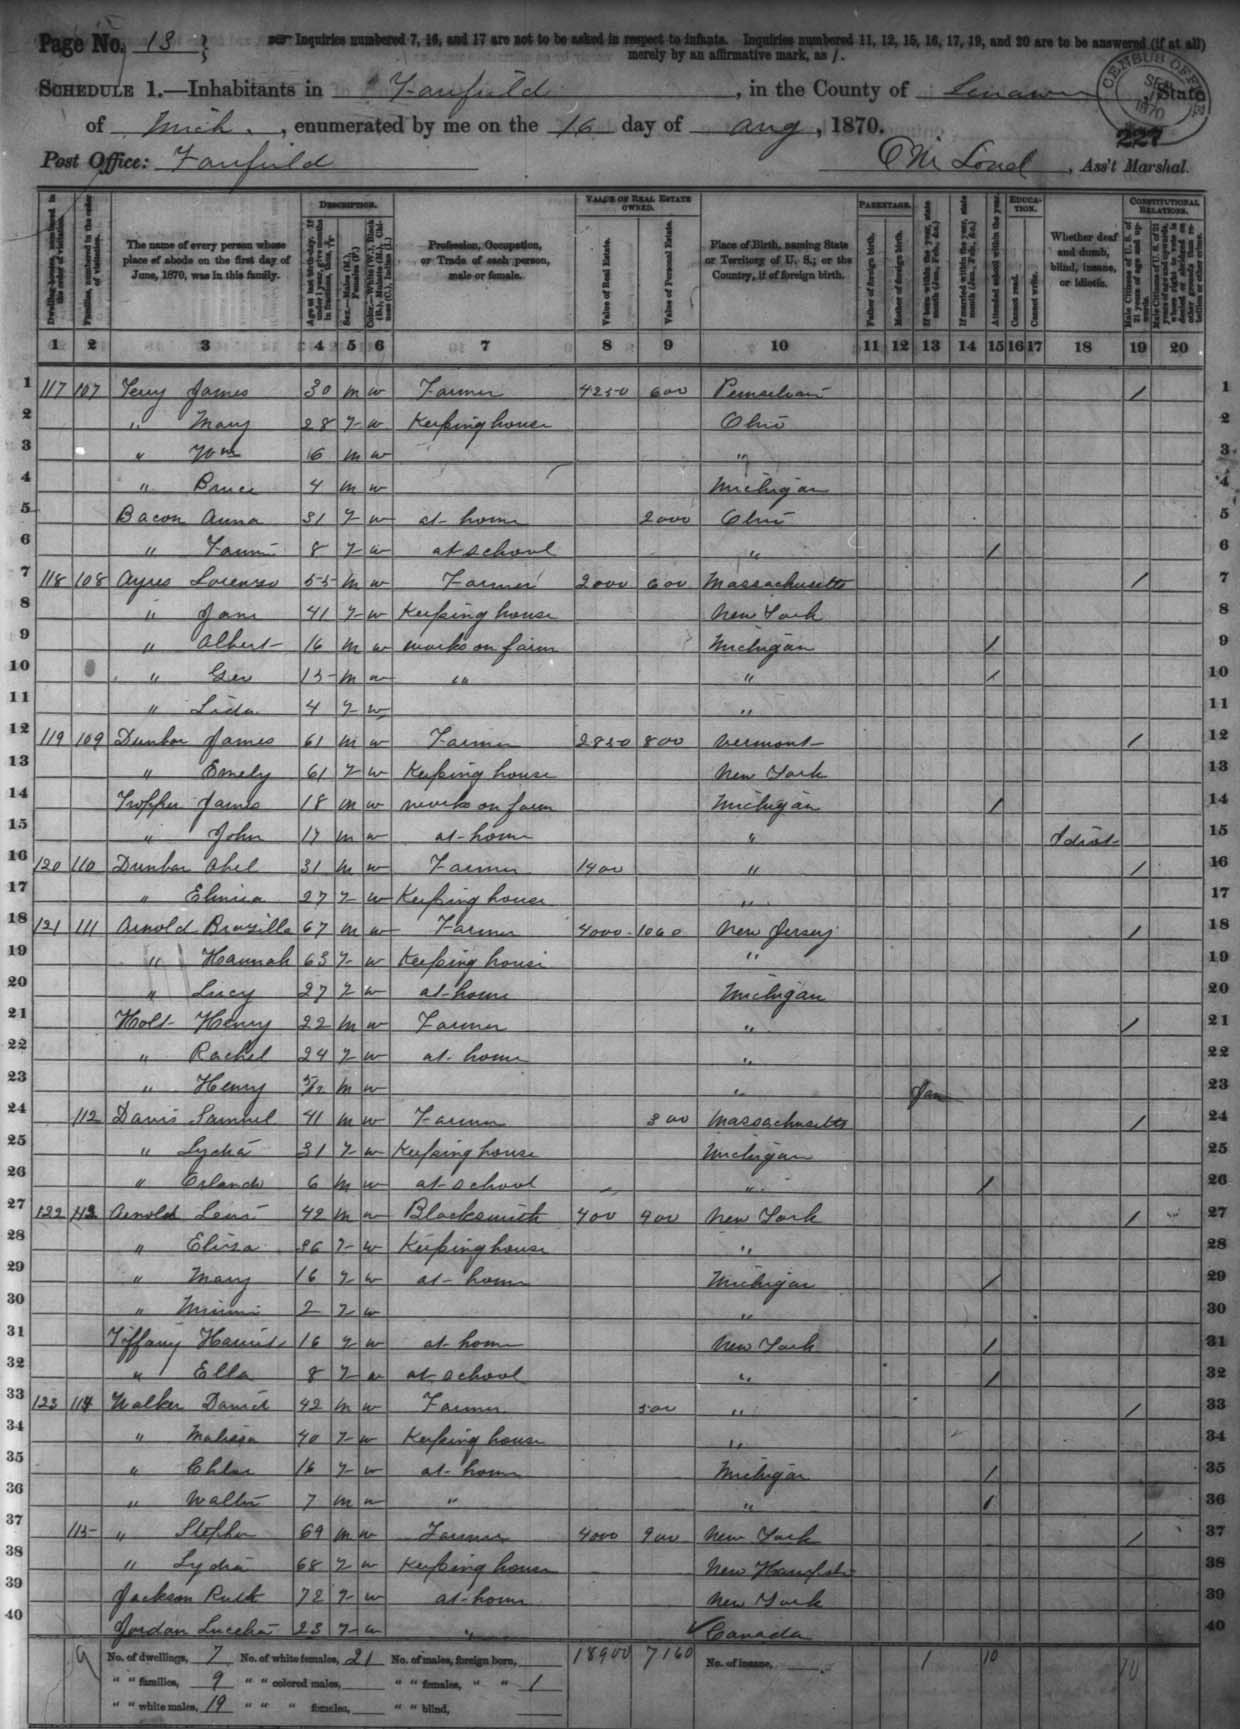 Page No. 13
Inquiries numbered 7, 16, and 17 are not to be asked in respect to infants. Inquiries numbered 11, 12, 15, 16, 17, 19, and 20 are to be answered (if at all)
merely by an affirmative mark, as /.
SCHEDULE 1.—Inhabitants in Fairfield, in the County of Lenawee, State
of Mich., enumerated by me on the 16 day of Aug, 1870.
CENSUS OFFICE 1870
227
Post Office: Fairfield , Ass't Marshal.
DESCRIPTION. VALUE OF REAL ESTATE OWNED. PARENTAGE. EDUCATION. CONSTITUTIONAL RELATIONS.
Dwelling-houses, numbered in the order of visitation. Families, numbered in the order of visitation. The name of every person whose place of abode on the first day of June, 1870, was in this family. Age at last birth-day. If under 1 year, give months in fractions, thus, Sex.—Males (M.), Females (F.) Color.—White (W.), Black (B.), Mulatto (M.), Chinese (C.), Indian (I.) Profession, Occupation, or Trade of each person, male or female. Value of Real Estate. Value of Personal Estate. Place of Birth, naming State or Territory of U. S.; or the Country, if of foreign birth. Father of foreign birth. Mother of foreign birth. If born within the year, state month (Jan., Feb., &c.) If married within the year, state month (Jan., Feb., &c.) Attended school within the year. Cannot read. Cannot write. Whether deaf and dumb, blind, insane, or idiotic. Male Citizens of U. S. of 21 years of age and upwards.
1 2 3 4 5 6 7 8 9 10 11 12 13 14 15 16 17 18 19 20
1 117 107 Terry James 30 m w Farmer 4250 600 / 1
2 " Mary 28 F w Keeping house Ohio 2
3 " Wm 6 m w " 3
4 " Bruce 4 m w Michigan 4
5 Bacon Anna 31 F w at home 2000 Ohio 5
6 " 8 F w at school " / 6
7 118 108 Ayres Lorenzo 55 m w Farmer 2000 600 Massachusetts / 7
8 " Jane 41 F w Keeping house New York 8
9 " Albert 16 m w works on farm Michigan / 9
10 " Geo 15 m w " " / 10
11 " Lida 4 F w " 11
12 119 109 Dunbar James 61 m w Farmer 2850 800 Vermont / 12
13 " Emely 61 F w Keeping house New York 13
14 James 18 m w works on farm Michigan / 14
15 " John 17 m w at home " Idiot 15
16 120 110 Dunbar Abel 31 m w Farmer 1400 " / 16
17 " Elmira 27 F w Keeping house " 17
18 121 111 Arnold Brazilla 67 m w Farmer 4000 1060 New Jersey / 18
19 " Hannah 63 F w Keeping house " 19
20 " Lucy 27 F w at home Michigan 20
21 Holt Henry 22 m w Farmer " / 21
22 " Rachel 24 F w at home " 22
23 " Henry 5/12 m w " Jan 23
24 112 Davis Samuel 41 m w Farmer 300 Massachusetts / 24
25 " Lydia 31 F w Keeping house Michigan 25
26 " Orlando 6 m w at school " / 26
27 122 113 Arnold Levi 42 m w Blacksmith 400 900 New York / 27
28 " Eliza 36 F w Keeping house " 28
29 " Mary 16 F w at home Michigan / 29
30 " Minnie 2 F w " 30
31 Tiffany Harriet 16 F w at home New York / 31
32 " Ella 8 F w at school " / 32
33 123 114 Walker Daniel 42 m w Farmer 500 " / 33
34 " Malissa 40 F w Keeping house " 34
35 " Chloe 16 F w at home Michigan / 35
36 " Walter 7 m w " " / 36
37 115 " Stephen 69 m w Farmer 4000 900 New York / 37
38 " Lydia 68 F w Keeping house 38
39 Jackson Ruth 72 F w at home New York 39
40 Jordan 23 F w " Canada 40
No. of dwellings, 7 No. of white females, 21 No. of males, foreign born, 18900 7160 No. of insane, 1 10 10
" " families, 9 " " colored males, " " females, " " 1
" " white males, 19 " " " females, " " blind,